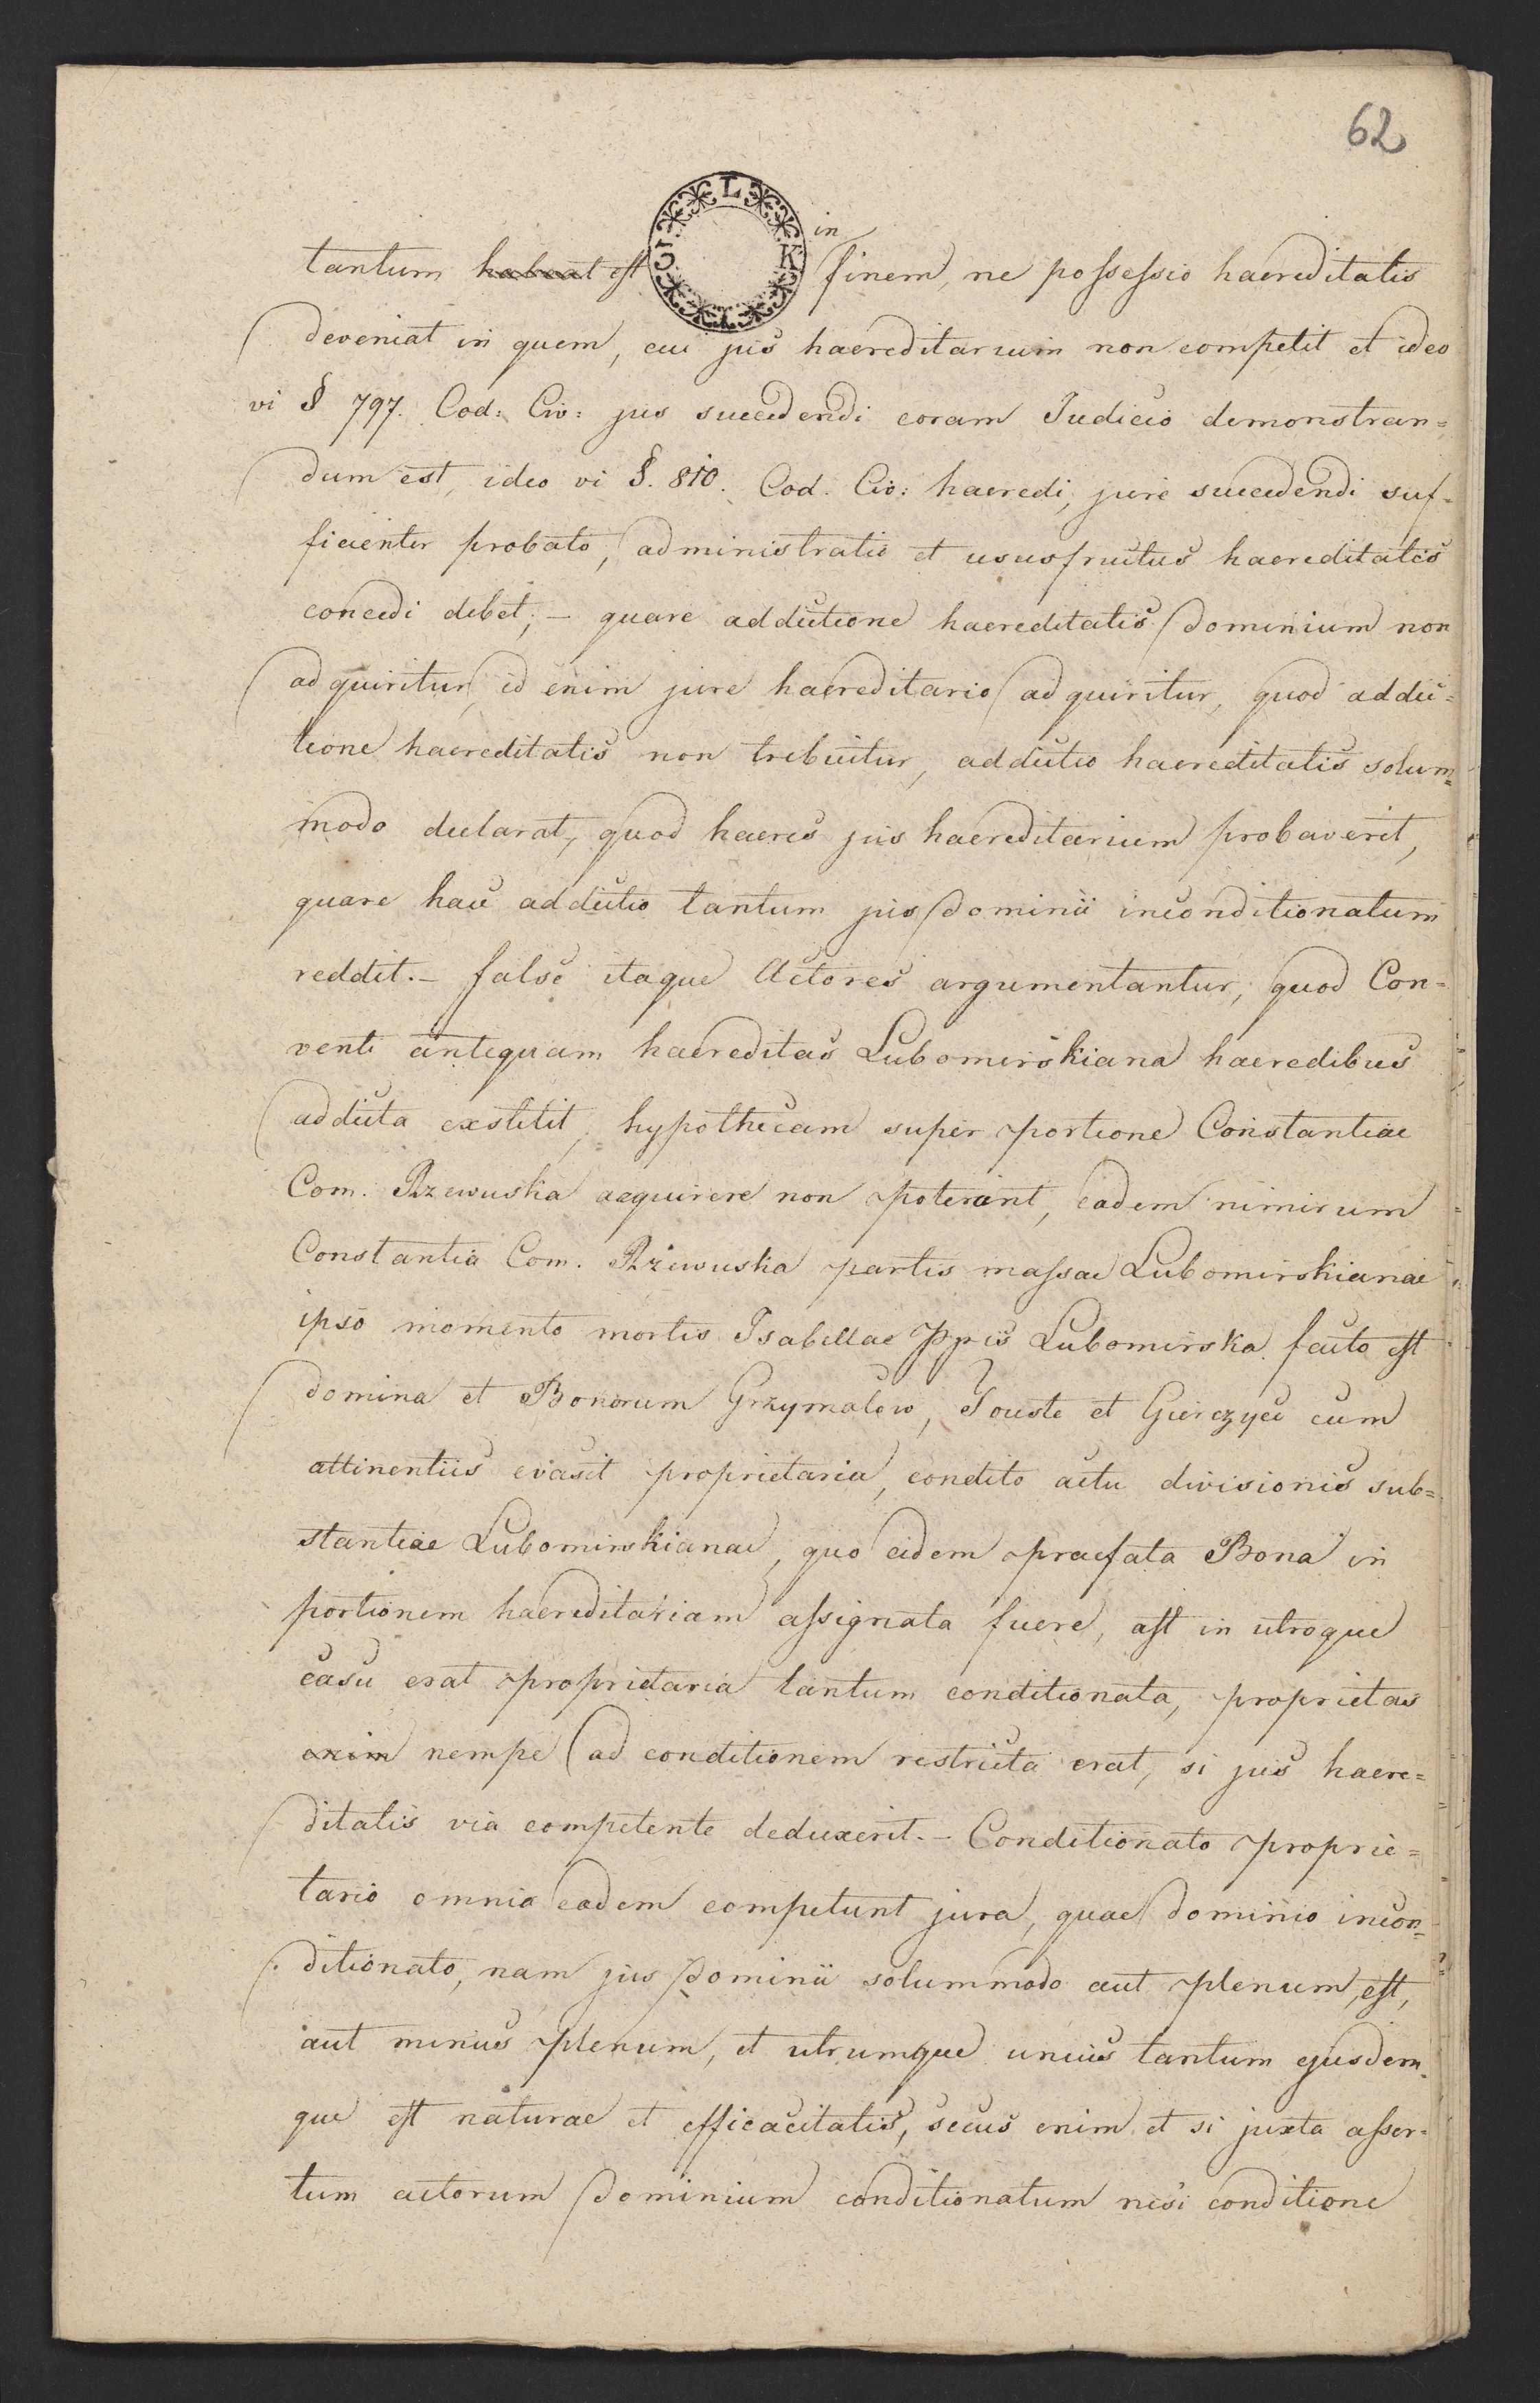 62
tantum habeat est in finem, ne possessio haereditatis
deveniat in quem, cui jus haereditarium non competit et ideo
vi § 797. Cod: Civ: jus succedendi coram Judicio demonstran=
dum est, ideo vi §. 810. Cod. Civ: haeredi, jure succedendi suf=
ficienter probato, administratio et ususfructus haereditatis
concedi debet; – quare addictione haereditatis dominium non
adquiritur, id enim jure haereditario adquiritur, quod addic=
tione haereditatis non tribuitur, addictio haereditatis solum=
modo declarat, quod haeres jus haereditarium probaverit,
quare haec addictio tantum jus dominii inconditionatum
reddit. – false itaque Actores argumentantur, quod Con=
venti antequam haereditas Lubomirskiana haeredibus
addicta exstitit, hypothecam super portione Constantiae
Com. Rzewuska acquirere non poterant, eadem nimirum
Constantia Com. Rzewuska partis massae Lubomirskianae
ipso momento mortis Isabellae Ppis Lubomirska facto est
domina et Bonorum Grzymałow, Touste et Gierczyce cum
attinentiis evasit proprietaria, condito actu divisionis sub=
stantiae Lubomirskianae, quo eidem praefata Bona in
portionem haereditariam assignata fuere, ast in utroque
casu erat proprietaria tantum conditionata, proprietas
enim nempe ad conditionem restricta erat, si jus haere=
ditatis via competente deduxerit. – Conditionato proprie=
tario omnia eadem competunt jura, quae dominio incon=
ditionato, nam jus Dominii solummodo aut plenum, est,
aut minus plenum, et utrumque unius tantum ejusdem
que est naturae et efficacitatis, secus enim et si juxta asser=
tum actorum dominium conditionatum nisi conditione